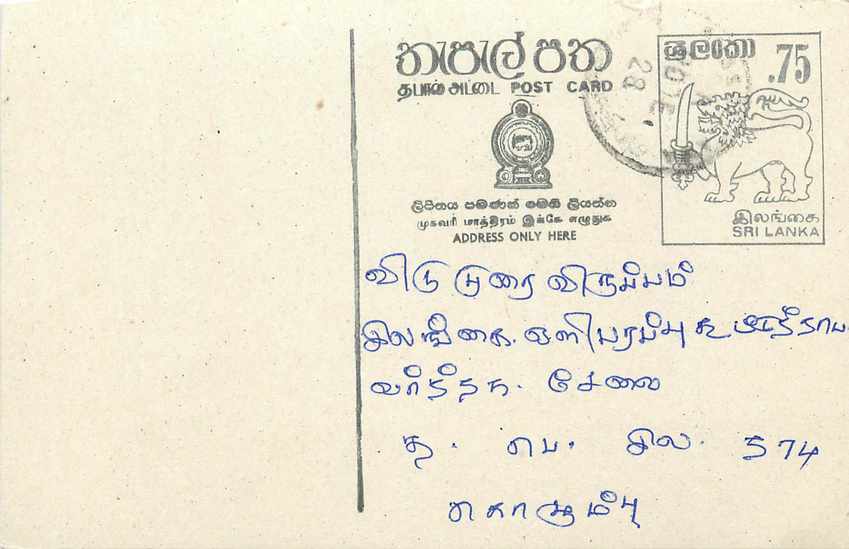 තැපැල් පත
ශ්‍රී ලංකා
.75
தபால் அட்டை POST CARD
28
ලිපිනය පමණක් මෙහි ලියන්න
முகவரி மாத்திரம் இங்கே எழுதுக
ADDRESS ONLY HERE
இலங்கை
SRI LANKA
விருப்பம்
இலங்கை ஒளிபரப்பு
வர்த்தக சேவை
த. பெ. இல. 574
கொழும்பு